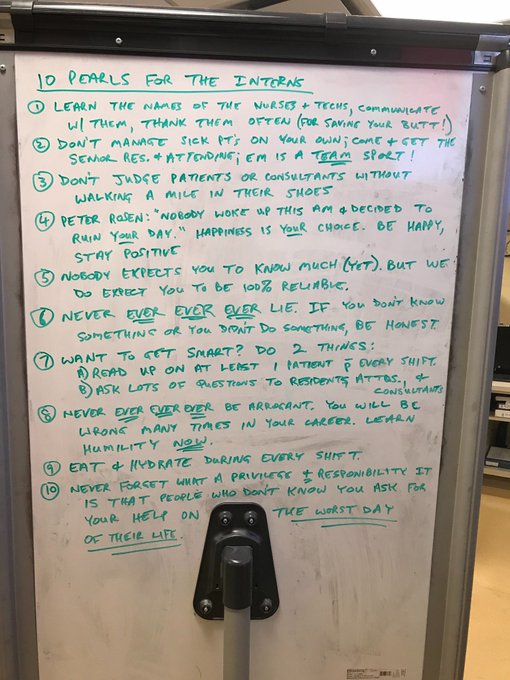 10 PEARLS FOR THE INTERNS
① LEARN THE NAMES OF THE NURSES + TECHS, COMMUNICATE
W/ THEM, THANK THEM OFTEN (FOR SAVING YOUR BUTT!)
② DON'T MANAGE SICK PT'S ON YOUR OWN; COME & GET THE
SENIOR RES. & ATTENDING; EM IS A TEAM SPORT!
③ DON'T JUDGE PATIENTS OR CONSULTANTS WITHOUT
WALKING A MILE IN THEIR SHOES
④ PETER ROSEN: "NOBODY WOKE UP THIS AM & DECIDED TO
RUIN YOUR DAY." HAPPINESS IS YOUR CHOICE. BE HAPPY,
STAY POSITIVE
⑤ NOBODY EXPECTS YOU TO KNOW MUCH (YET). BUT WE
DO EXPECT YOU TO BE 100% RELIABLE.
⑥ NEVER EVER EVER EVER LIE. IF YOU DON'T KNOW
SOMETHING OR YOU DIDN'T DO SOMETHING, BE HONEST.
⑦ WANT TO GET SMART? DO 2 THINGS:
A) READ UP ON AT LEAST 1 PATIENT p̄ EVERY SHIFT.
B) ASK LOTS OF QUESTIONS TO RESIDENTS, ATTDS., &
CONSULTANTS
⑧ NEVER EVER EVER EVER BE ARROGANT. YOU WILL BE
WRONG MANY TIMES IN YOUR CAREER. LEARN
HUMILITY NOW.
⑨ EAT & HYDRATE DURING EVERY SHIFT.
⑩ NEVER FORGET WHAT A PRIVILEGE & RESPONSIBILITY IT
IS THAT PEOPLE WHO DON'T KNOW YOU ASK FOR
YOUR HELP ON THE WORST DAY
OF THEIR LIFE.